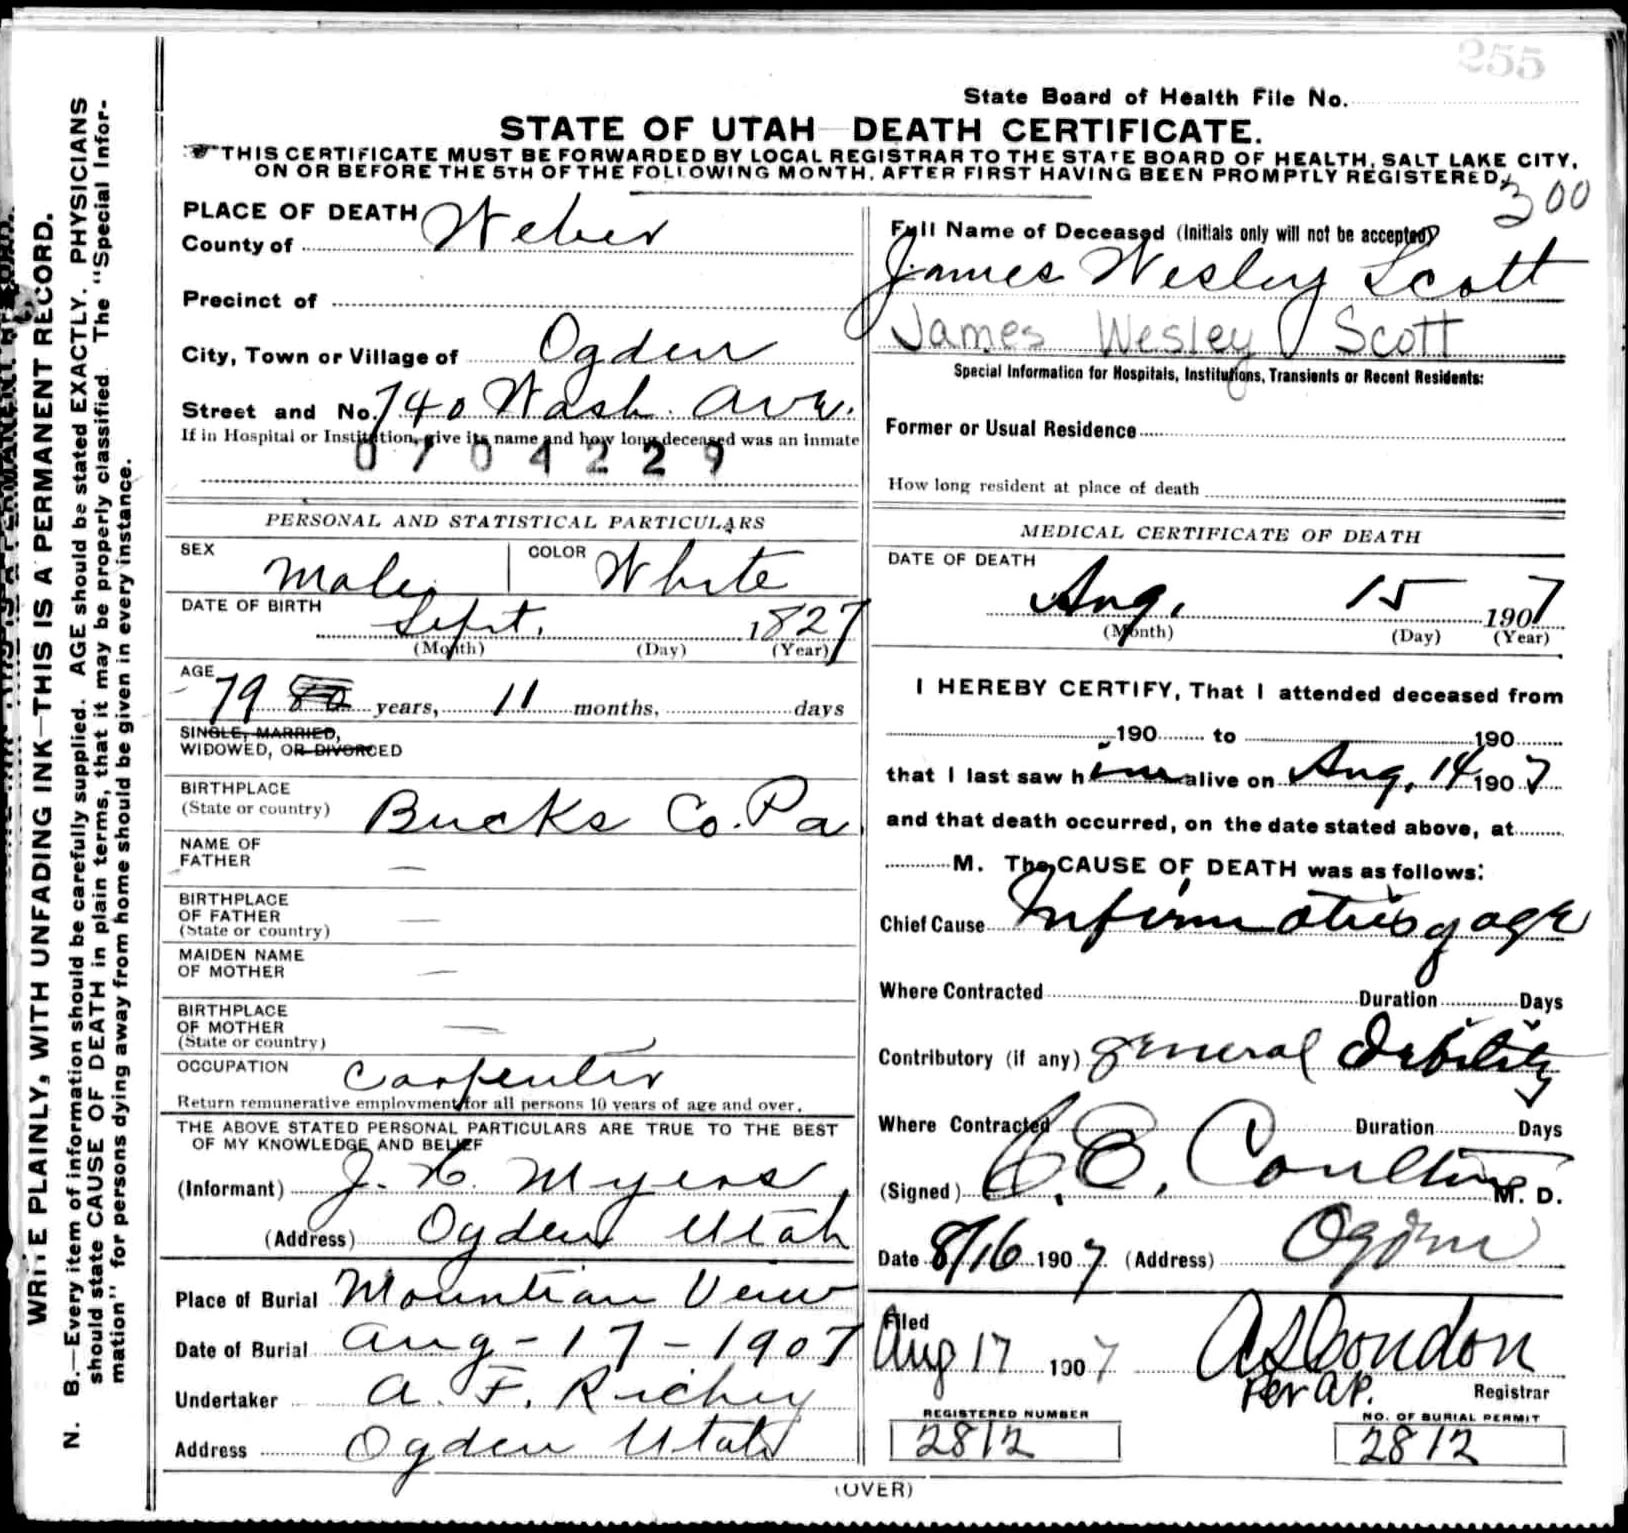 255
State Board of Health File No.
STATE OF UTAH—DEATH CERTIFICATE.
THIS CERTIFICATE MUST BE FORWARDED BY LOCAL REGISTRAR TO THE STATE BOARD OF HEALTH, SALT LAKE CITY,
ON OR BEFORE THE 5TH OF THE FOLLOWING MONTH, AFTER FIRST HAVING BEEN PROMPTLY REGISTERED.
300
WRITE PLAINLY, WITH UNFADING INK—THIS IS A PERMANENT RECORD.
N. B.—Every item of information should be carefully supplied. AGE should be stated EXACTLY. PHYSICIANS
should state CAUSE OF DEATH in plain terms, that it may be properly classified. The "Special Infor-
mation" for persons dying away from home should be given in every instance.
PLACE OF DEATH
County of Weber
Precinct of
City, Town or Village of Ogden
Street and No. 740 Wash. Ave.
If in Hospital or Institution, give its name and how long deceased was an inmate
0704229
PERSONAL AND STATISTICAL PARTICULARS
SEX Male COLOR White
DATE OF BIRTH Sept. 1827
(Month) (Day) (Year)
AGE 79 80 years, 11 months, days
SINGLE, MARRIED,
WIDOWED, OR DIVORCED
BIRTHPLACE
(State or country) Bucks Co. Pa
NAME OF
FATHER —
BIRTHPLACE
OF FATHER —
(State or country)
MAIDEN NAME
OF MOTHER —
BIRTHPLACE
OF MOTHER —
(State or country)
OCCUPATION Carpenter
Return remunerative employment for all persons 10 years of age and over.
THE ABOVE STATED PERSONAL PARTICULARS ARE TRUE TO THE BEST
OF MY KNOWLEDGE AND BELIEF
(Informant) J. H. Myers
(Address) Ogden Utah
Place of Burial Mountian Veiw
Date of Burial Aug-17-1907
Undertaker A. F. Richey
Address Ogden Utah
Full Name of Deceased (Initials only will not be accepted)
James Wesley Scott
James Wesley Scott
Special Information for Hospitals, Institutions, Transients or Recent Residents:
Former or Usual Residence
How long resident at place of death
MEDICAL CERTIFICATE OF DEATH
DATE OF DEATH
Aug. 15 1907
(Month) (Day) (Year)
I HEREBY CERTIFY, That I attended deceased from
190 to 190
that I last saw him alive on Aug. 14 1907
and that death occurred, on the date stated above, at
M. The CAUSE OF DEATH was as follows:
Chief Cause of age
Where Contracted Duration Days
Contributory (if any) general debility
Where Contracted Duration Days
(Signed) E. Coulter M. D.
Date 8/16 1907 (Address) Ogden
Filed
Aug 17 1907 A S Condon
Per AP. Registrar
REGISTERED NUMBER
2812
NO. OF BURIAL PERMIT
2812
(OVER)